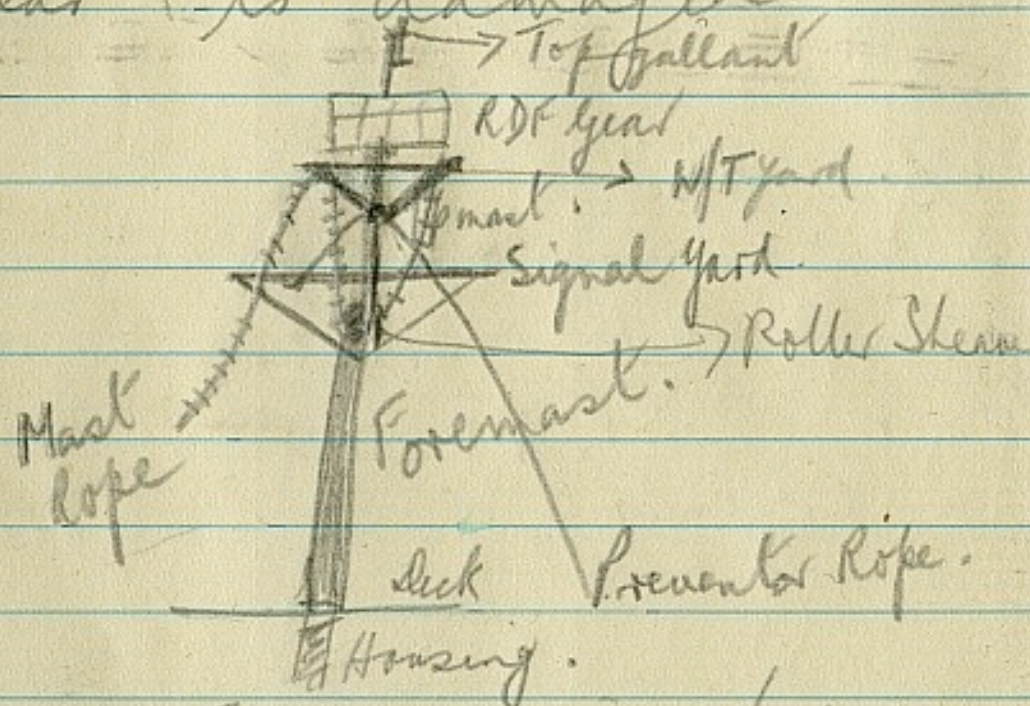 is damage
Top gallant
RDF Gear
W/T yard.
Signal Yard.
Roller Sheave
Foremast.
Mast
Rope
Deck
Preventor Rope.
Housing.